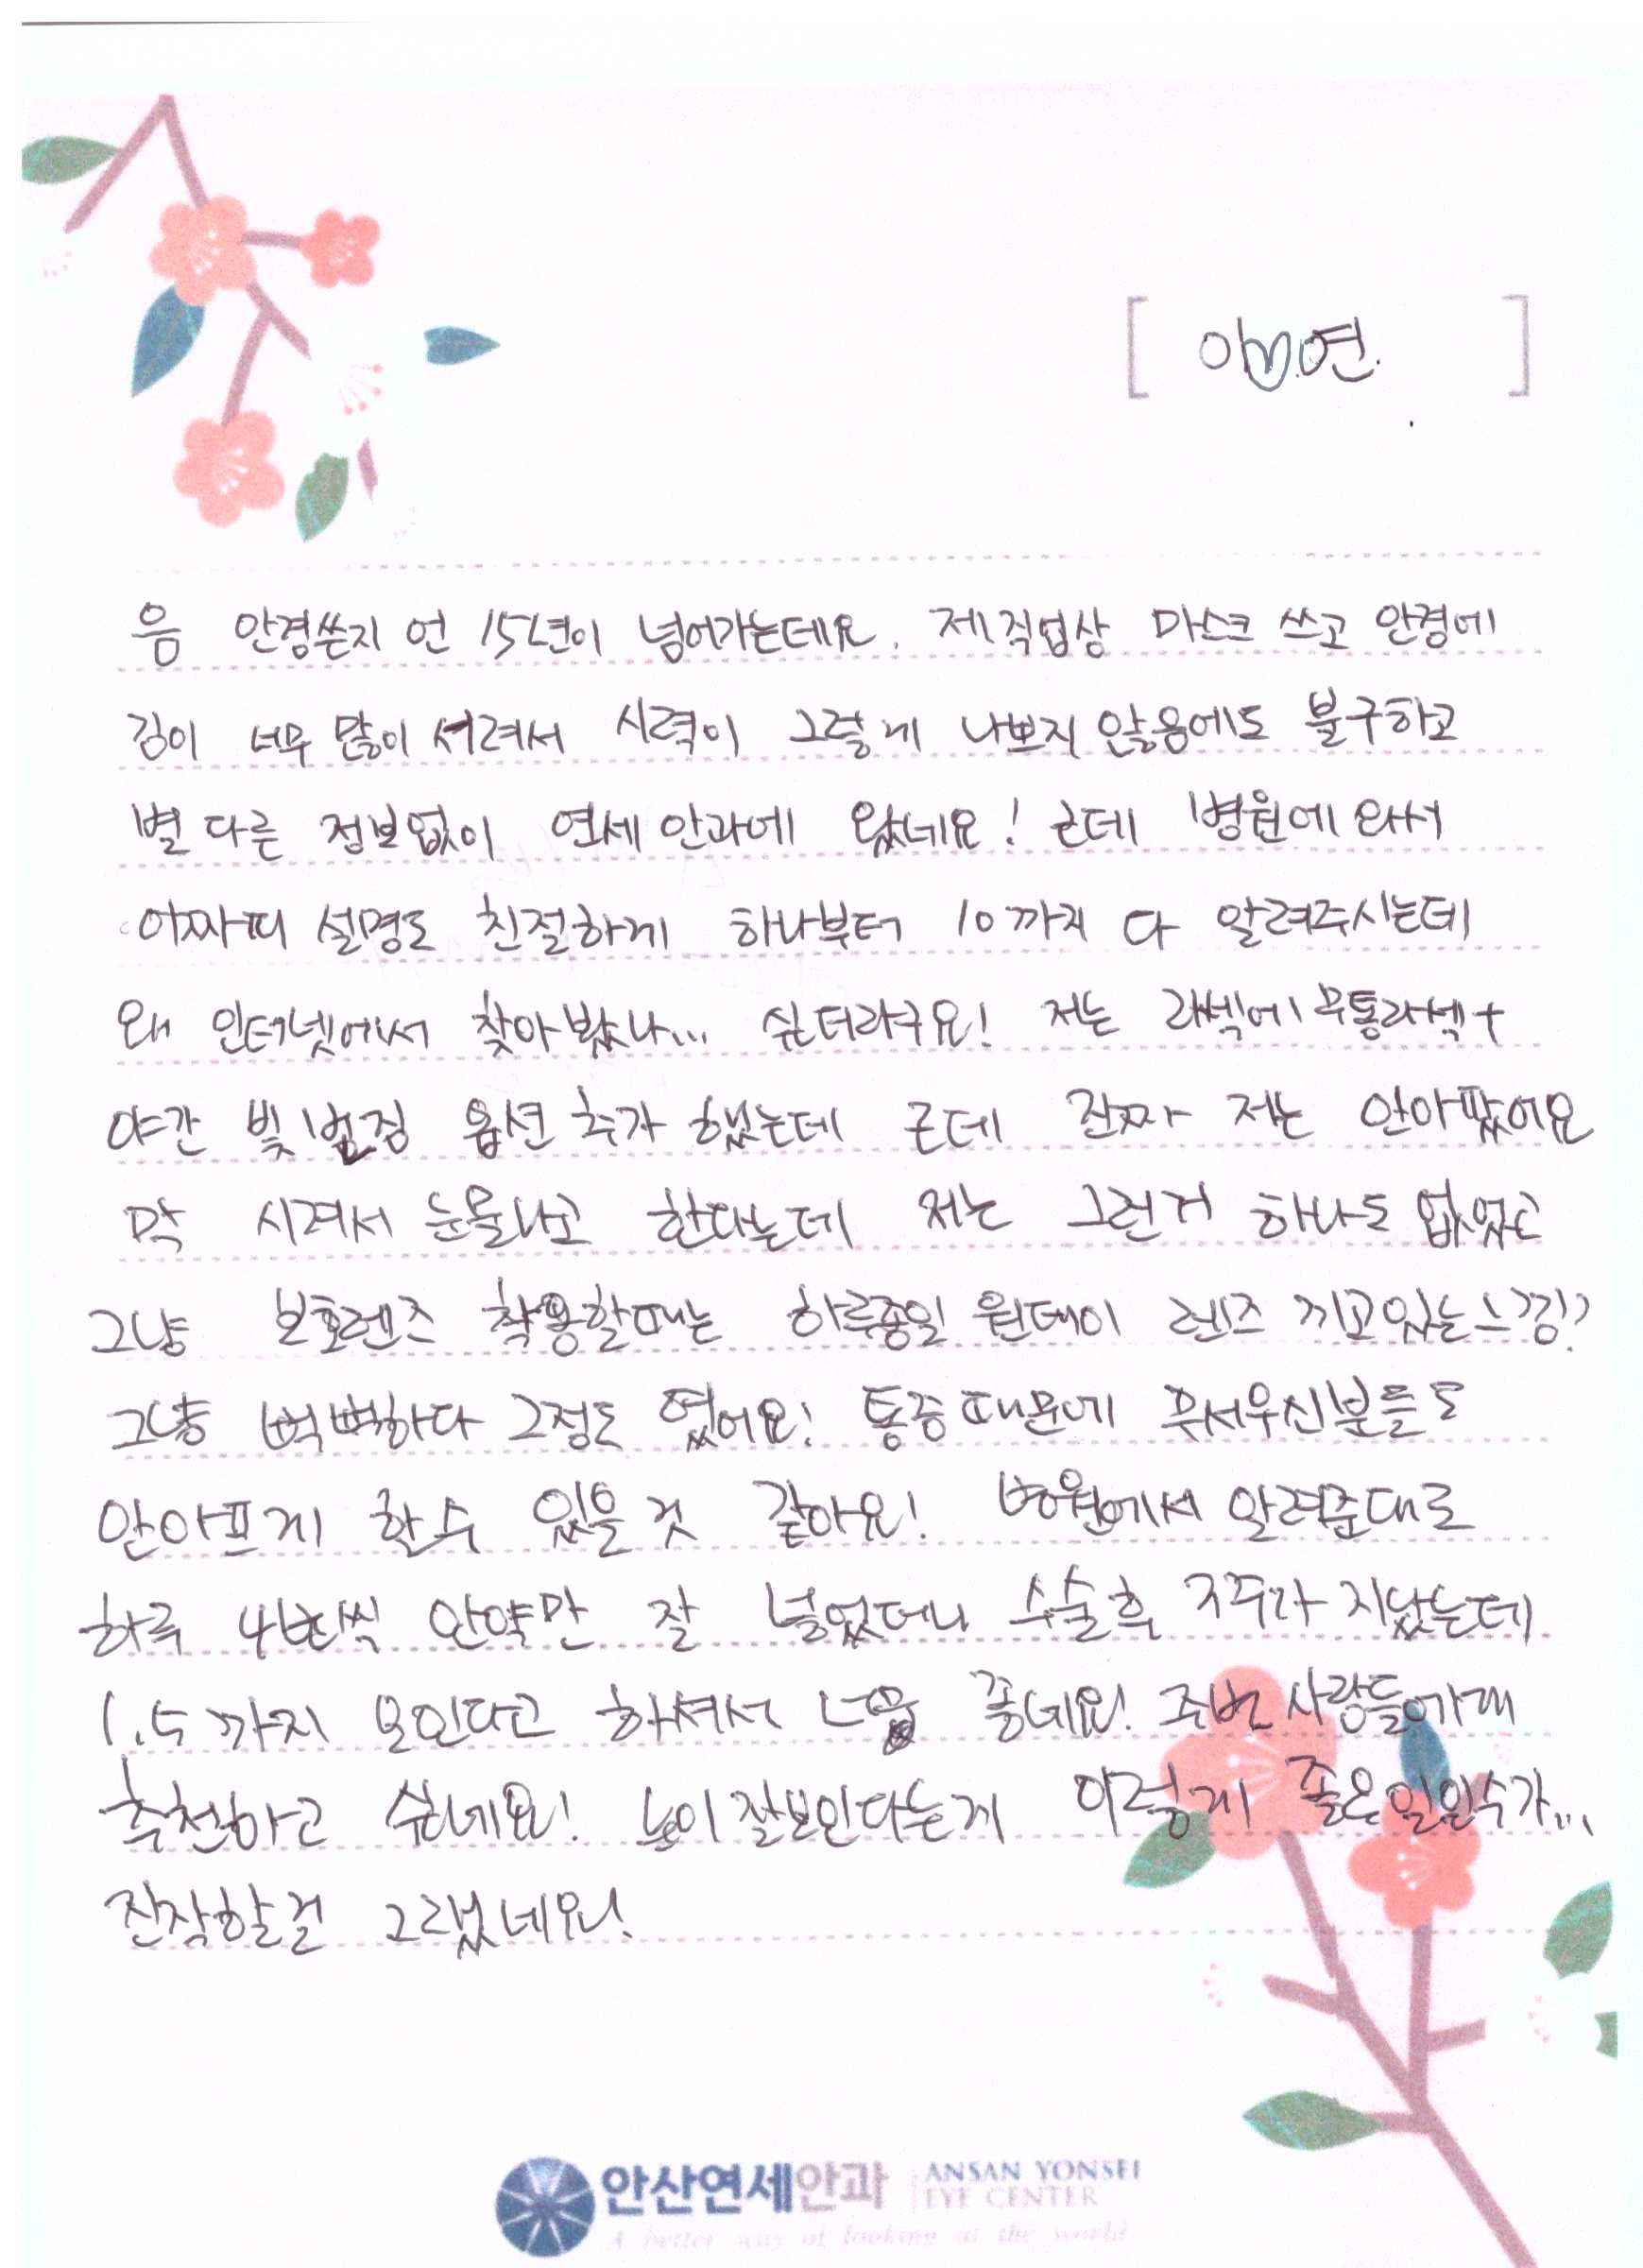 [ 이♡연. ]
음 안경쓴지 언 15년이 넘어가는데요. 제 직업상 마스크 쓰고 안경에
김이 너무 많이 서려서 시력이 그렇게 나쁘지 않음에도 불구하고
별 다른 정보없이 연세안과에 왔네요! 근데 병원에 와서
어짜피 설명도 친절하게 하나부터 10까지 다 알려주시는데
왜 인터넷에서 찾아봤나... 싶더라구요! 저는 라섹에 무통라섹+
야간 빛번짐 옵션 추가 했는데 근데 진짜 저는 안아팠어요
막 시려서 눈물나고 한다는데 저는 그런거 하나도 없었고
그냥 보호렌즈 착용할때는 하루종일 원데이 렌즈 끼고있는 느낌?
그냥 뻑뻑하다 그정도 였어요! 통증때문에 무서우신분들도
안아프게 할수 있을 것 같아요! 병원에서 알려준대로
하루 4번씩 안약만 잘 넣었더니 수술후 3주가 지났는데
1.5까지 보인다고 하셔서 너무 좋네요! 주변 사람들에게
추천하고 싶네요! 눈이 잘보인다는게 이렇게 좋은일일수가...
진작할걸 그랬네요!
안산연세안과 ANSAN YONSEI
EYE CENTER
A better way of looking at the world